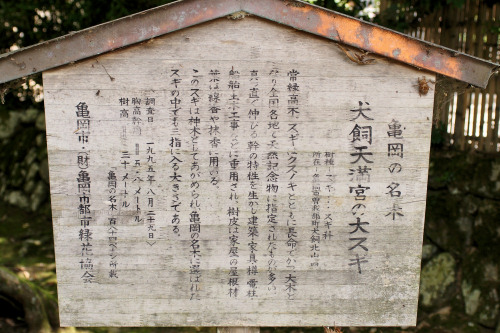 亀岡の名木
犬飼天満宮の大スギ
樹種 スギ スギ科
所在 亀岡市曽我部町犬飼北山
常緑高木 スギ クスノキとともに長命 大木と
なり全国各地で天然記念物に指定されたものが多い
真直 伸びる幹の特性を生かし建築 家具 樽 電柱
船舶 土木工事 などに重用され 樹皮は家屋の屋根材
葉は線香や抹香に用いる
このスギは神木としてあがめられ 亀岡の名木に選ばれた
スギの中でも三指に入る大きさである。
調査日 一九九五年八月二十九日
胸高幹 五 メートル
樹高 二十 メートル
亀岡の名木 百八十四 ページ所載
亀岡市 財 亀岡市都市緑花協会